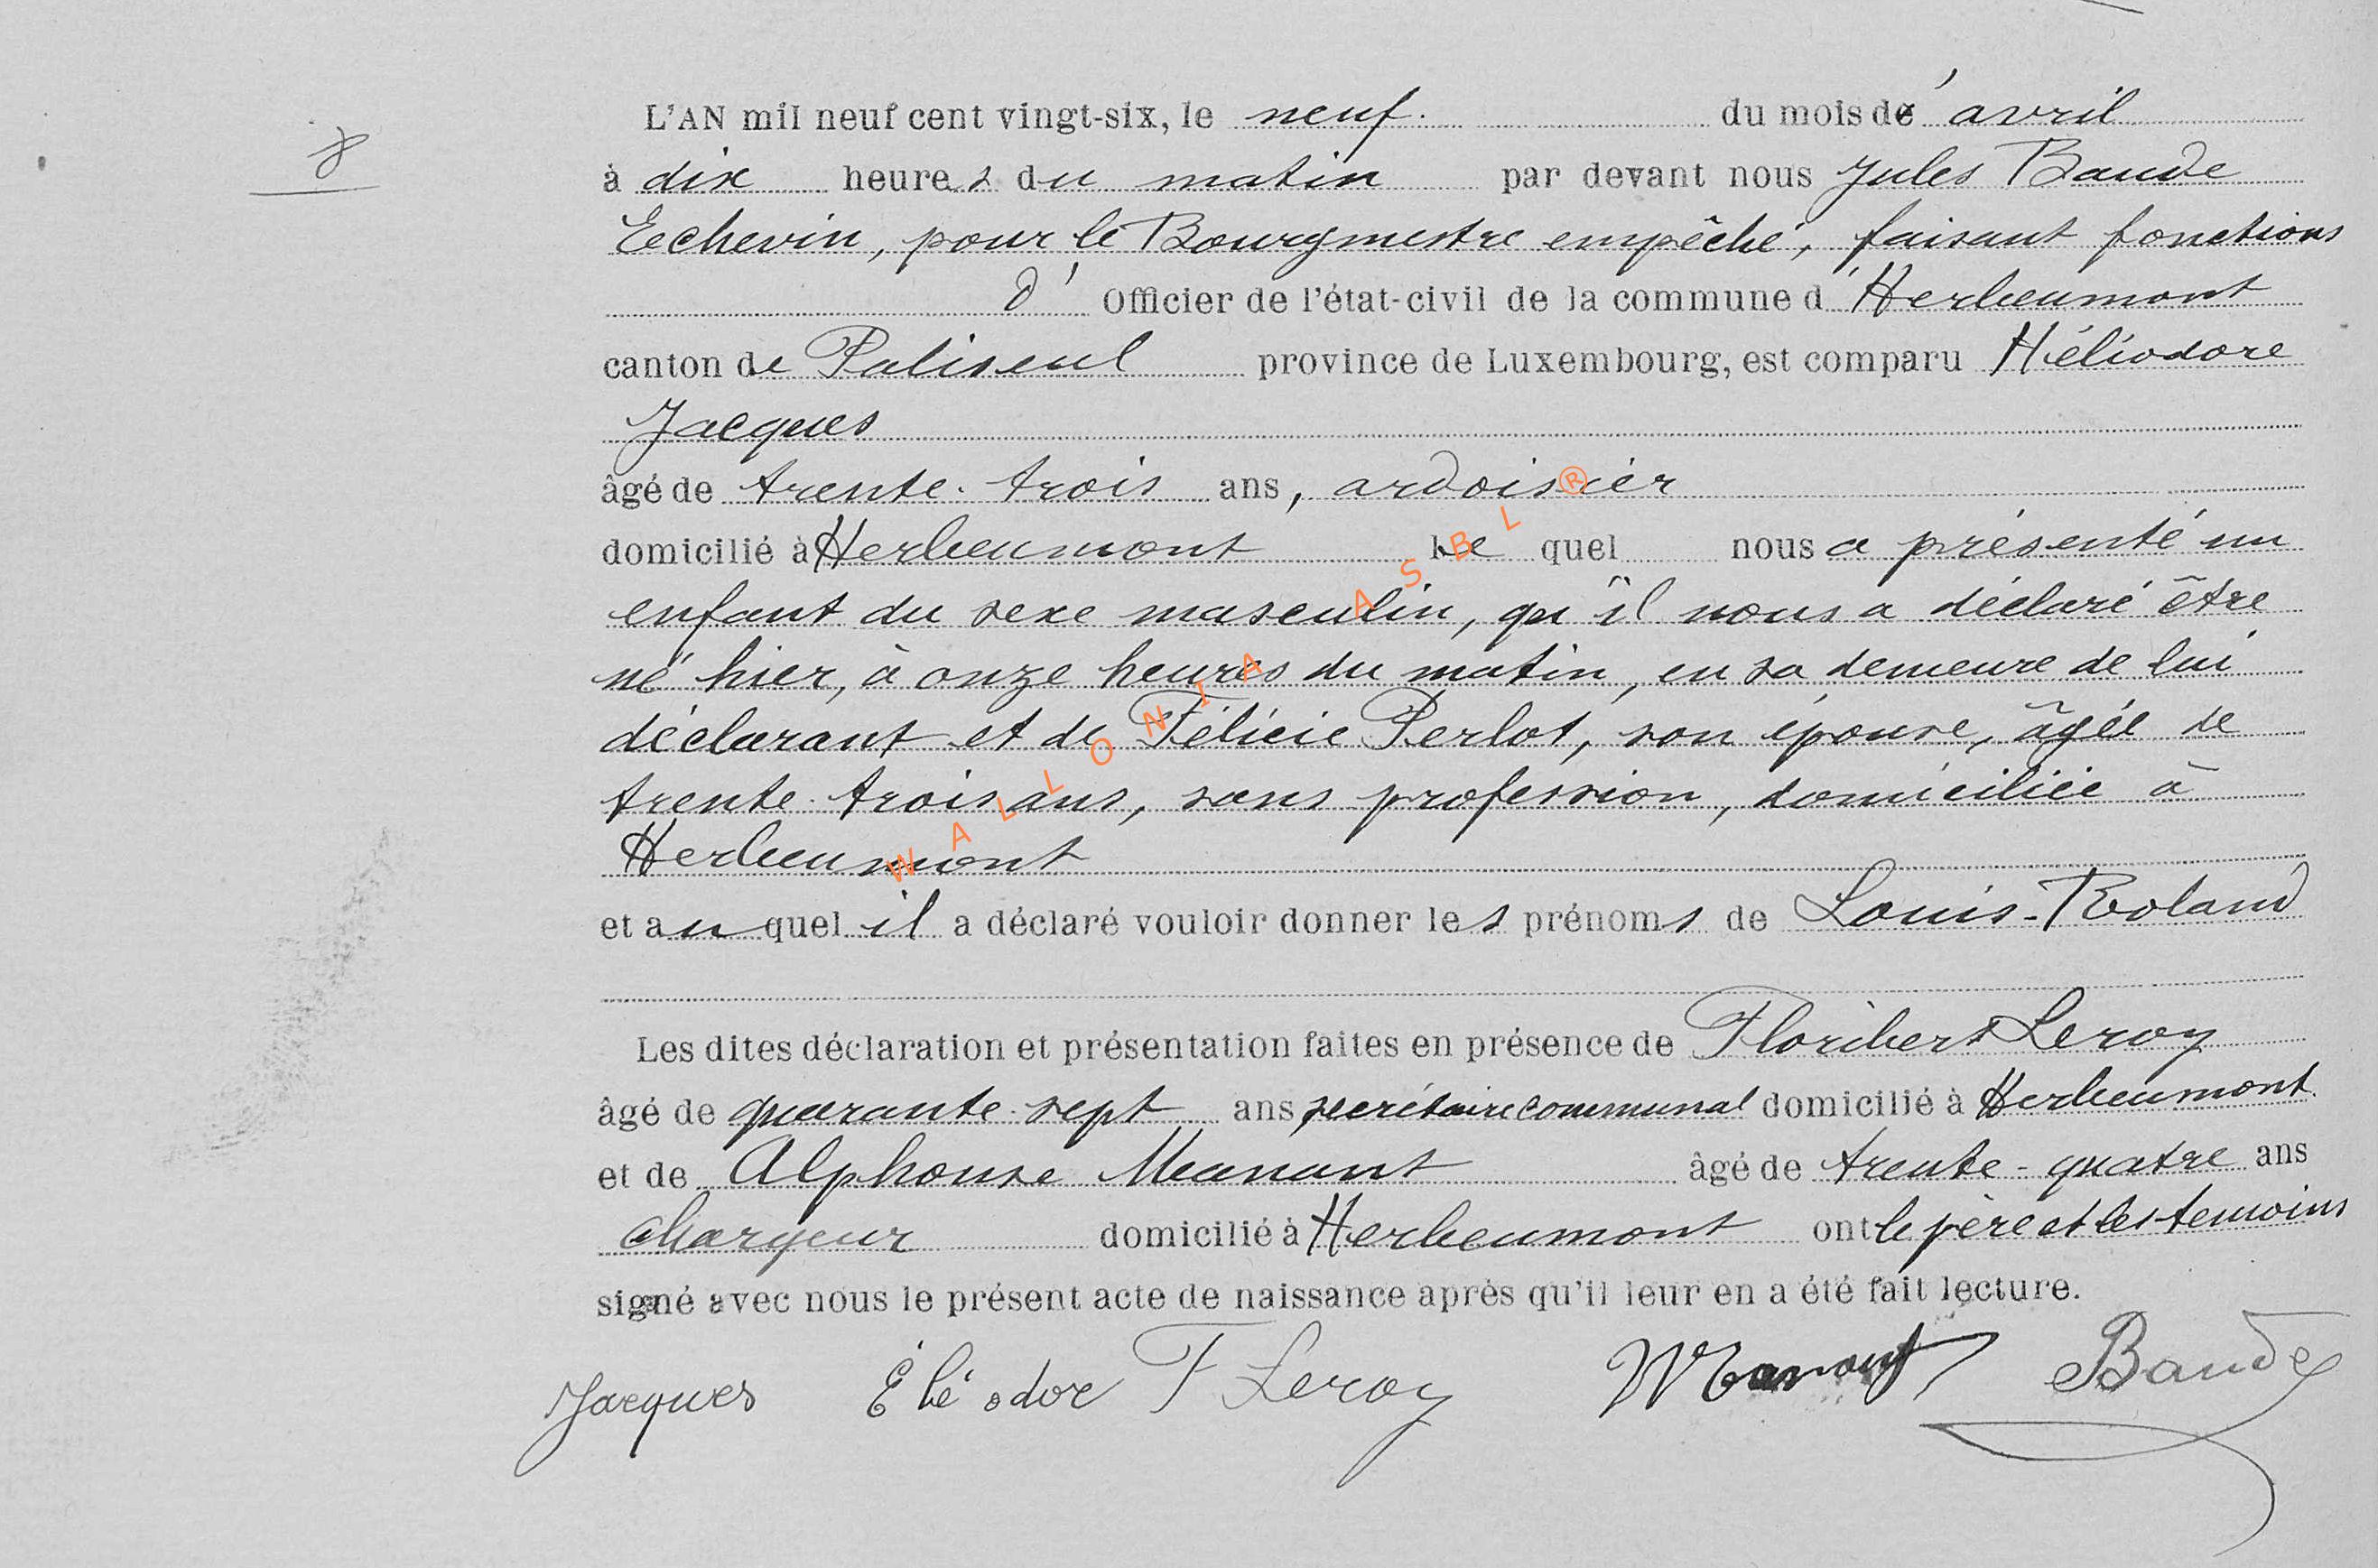 8
L'AN mil neuf cent vingt-six, le neuf. du mois d' avril
à dix heures du matin par devant nous Jules Baude
Echevin, pour le Bourgmestre empêché, faisant fonctions
d' Officier de l'état-civil de la commune d'Herbeumont
canton de Paliseul province de Luxembourg, est comparu Héliodore
Jacques
âgé de trente-trois ans, ardoisier
domicilié à Herbeumont le quel nous a présenté un
enfant du sexe masculin, qu'il nous a déclaré être
né hier, à onze heures du matin, en sa demeure de lui
déclarant et de Félicie Perlot, son épouse, âgée de
trente-trois ans, sans profession, domiciliée à
Herbeumont
et au quel il a déclaré vouloir donner les prénoms de Louis-Roland
Les dites déclaration et présentation faites en présence de Floribert Leroy
âgé de quarante-sept ans, secrétaire communal domicilié à Herbeumont
et de Alphonse Manant âgé de trente-quatre ans
chargeur domicilié à Herbeumont ont le père et les temoins
signé avec nous le présent acte de naissance après qu'il leur en a été fait lecture.
Jacques Éliéodor F Leroy Manant Baude
WALLONIA ASBL ®